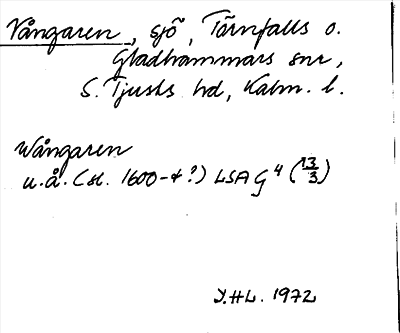 Vångaren, sjö, Törnfalls o.
Gladhammars snr,
S. Tjusts hd, Kalm. l.
Wångaren
u.å. (sl. 1600-t?) LSA G⁴ (13/3)
Y.HL. 1972